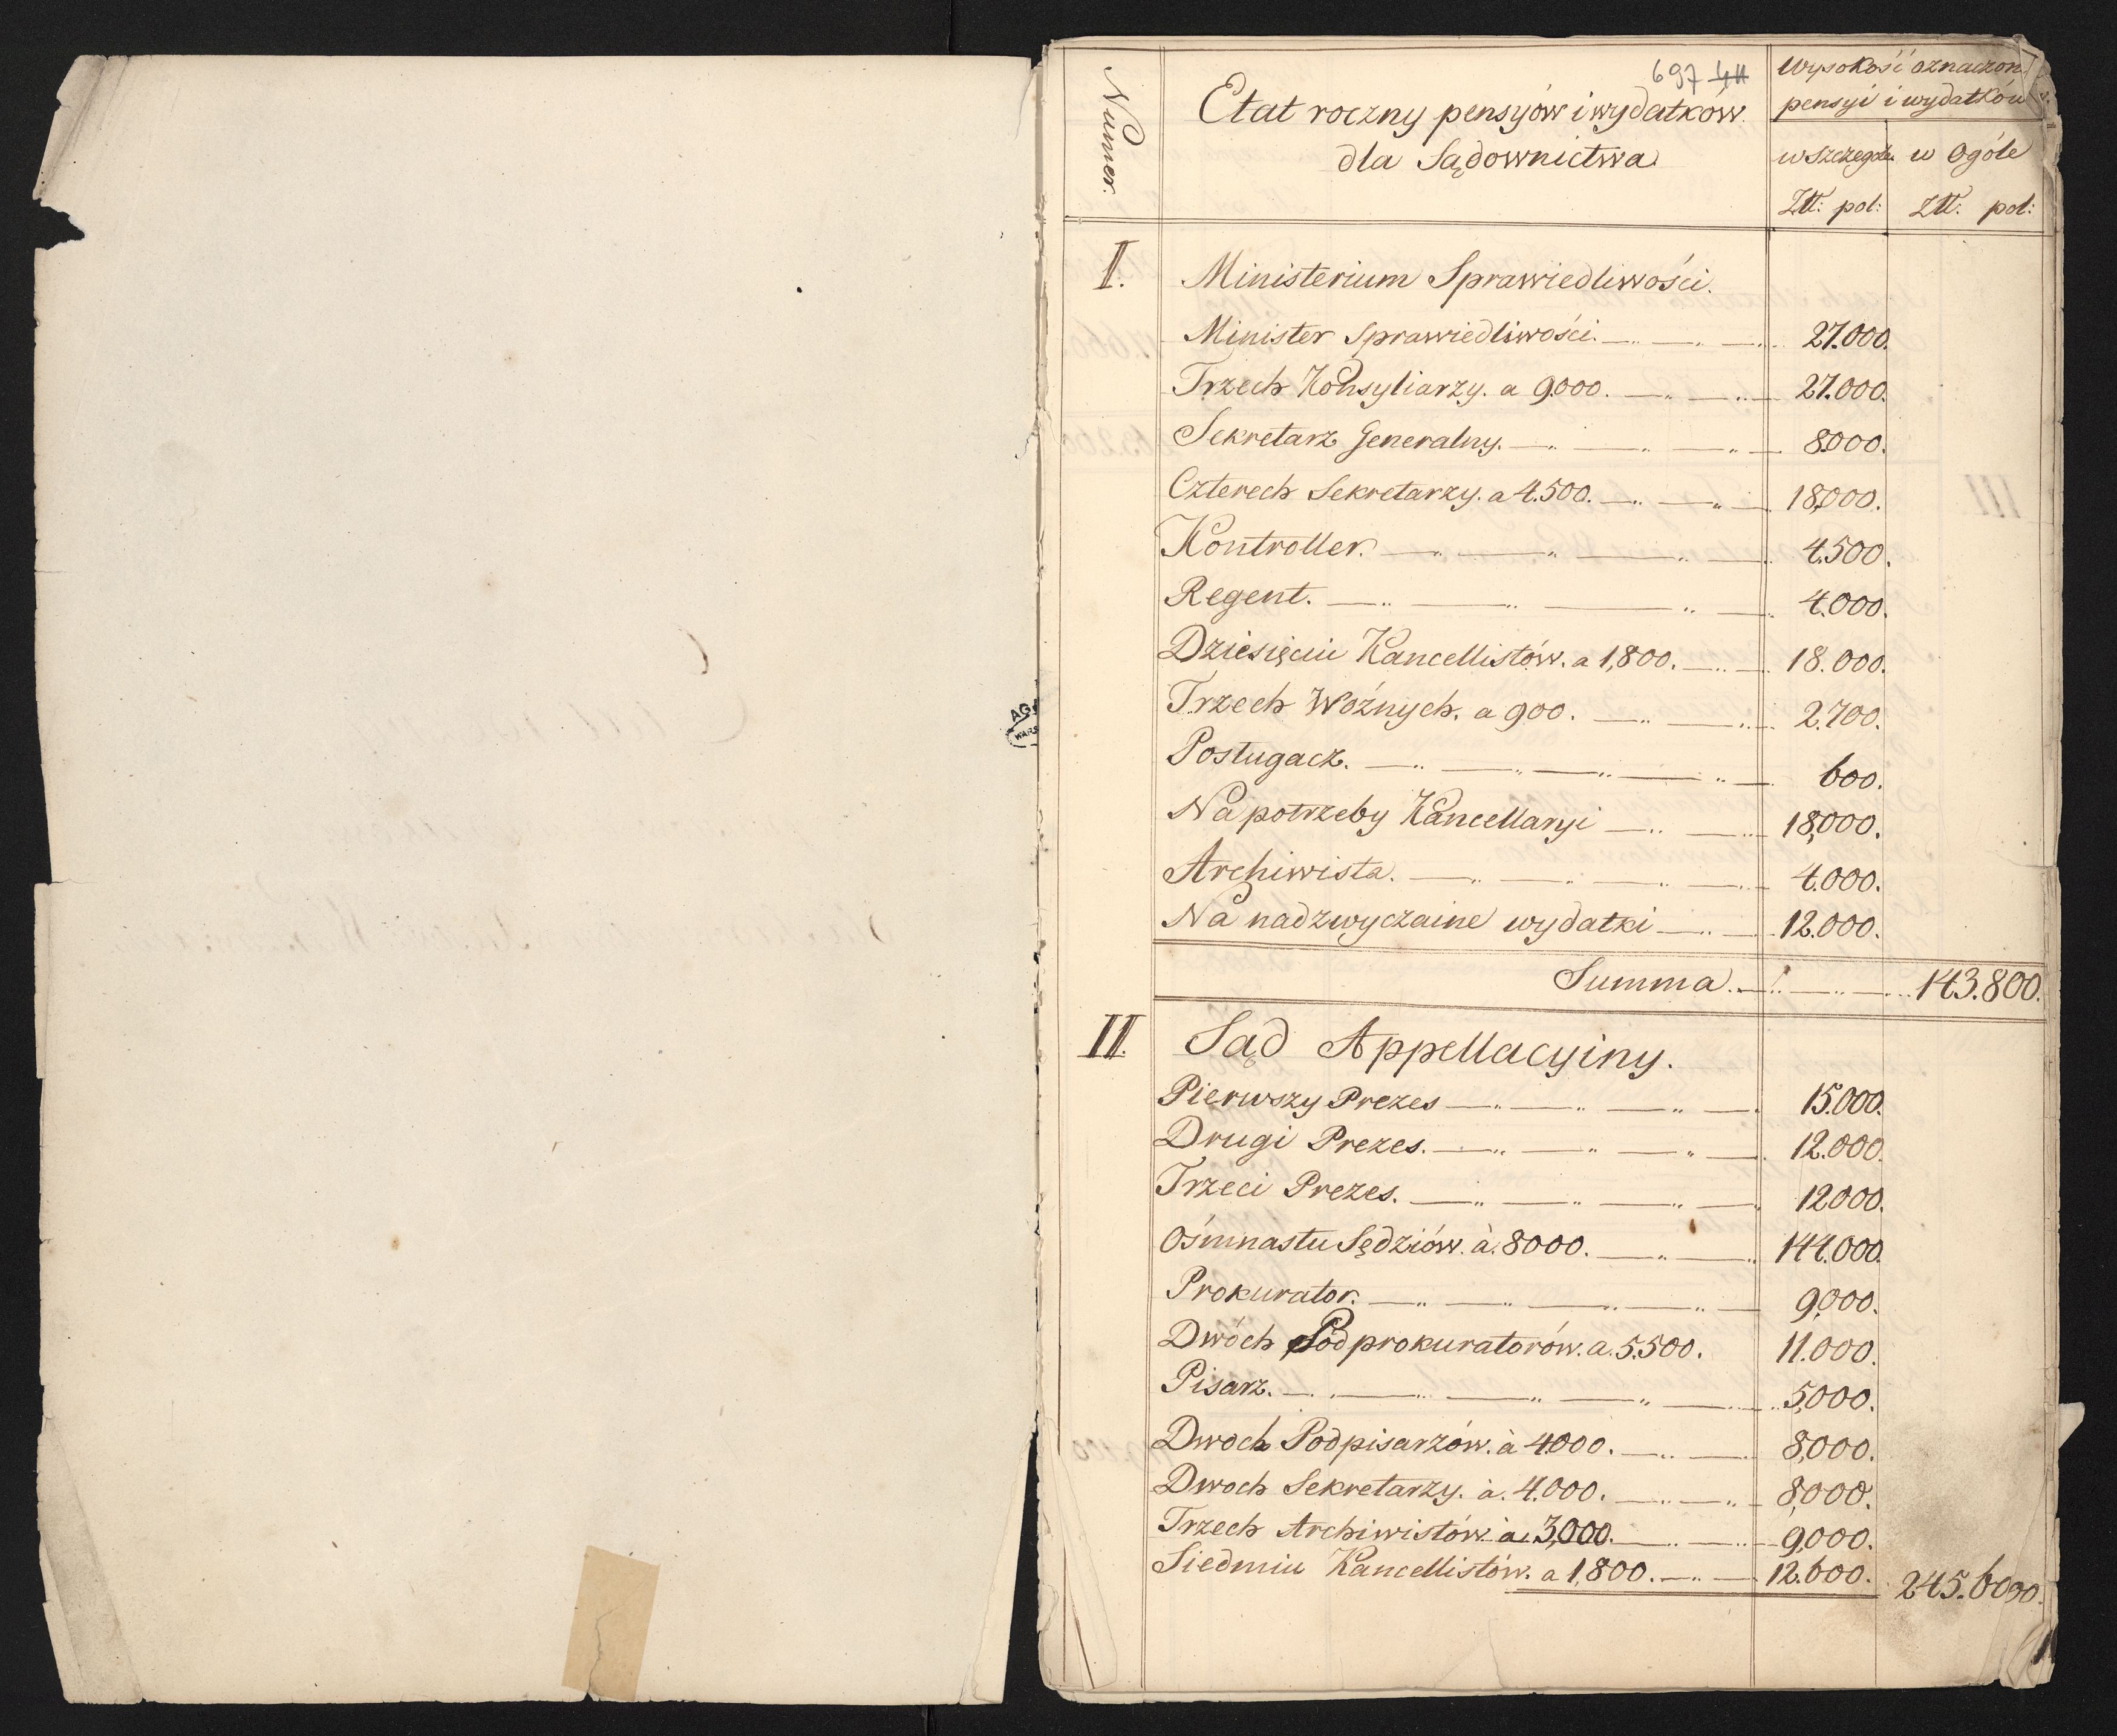 697 411
Numer.
Etat roczny pensyów i wydatków
dla Sądownictwa
Wysokość oznaczon
pensyi i wydatków
w szczególe
w Ogóle
Złł: pol:
Złł. pol:
I.
Ministerium Sprawiedliwości.
Minister Sprawiedliwości. 27.000.
Trzech Konsyliarzy. a 9000. 27.000.
Sekretarz Generalny. 8000.
Czterech Sekretarzy. a 4.500. 18,000.
Kontroller. 4.500.
Regent. 4.000.
Dziesięciu Kancellistów. a 1,800. 18.000.
Trzech Woźnych. a 900. 2.700.
Posługacz. 600.
Na potrzeby Kancellaryi 18,000.
Archiwista. 4.000.
Na nadzwyczaine wydatki 12.000.
Summa. 143.800.
II.
Sąd Appellacyiny.
Pierwszy Prezes 15.000.
Drugi Prezes. 12.000.
Trzeci Prezes. 12000.
Ośmnastu Sędziów. à. 8000. 144.000.
Prokurator. 9,000.
Dwóch Podprokuratorów. a. 5.500. 11.000.
Pisarz. 5,000.
Dwoch Podpisarzów. à 4000. 8,000.
Dwoch Sekretarzy. à. 4.000. 8,000.
Trzech Archiwistów à. 3,000. 9,000.
Siedmiu Kancellistów. a 1,800. 12.600. 245.600.